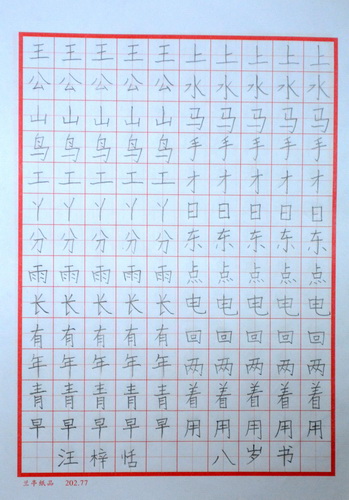 王王王王王上上上上上
公公公公公水水水水水
山山山山山马马马马马
鸟鸟鸟鸟鸟手手手手手
工工工工工才才才才才
丫丫丫丫丫日日日日日
分分分分分东东东东东
雨雨雨雨雨点点点点点
长长长长长电电电电电
有有有有有回回回回回
年年年年年两两两两两
青青青青青着着着着着
早早早早早用用用用用
汪梓恬 八岁书
兰亭纸品 202.77